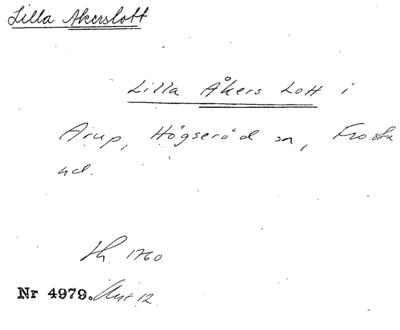 Lilla Åkerslott
Lilla Åkers Lott i
Arup, Högseröd sn, Frosta
hd.
1760
Nr 4979. Akt 12